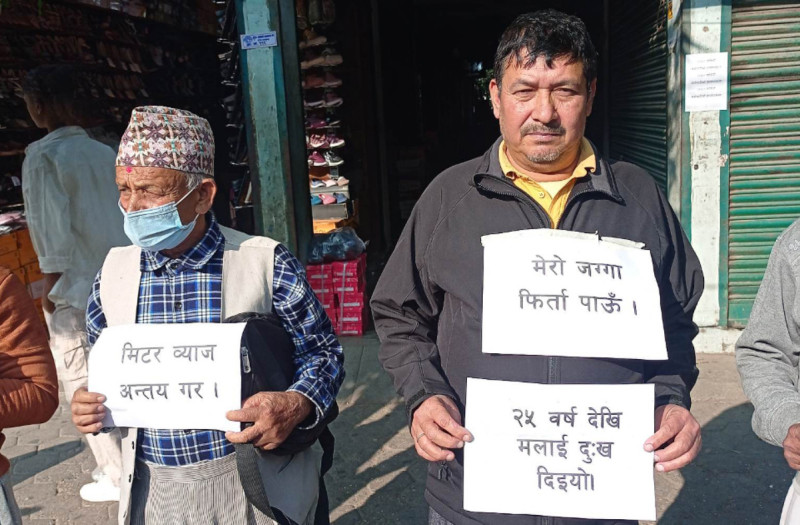 मिटर व्याज
अन्तय गर ।
मेरो जग्गा
फिर्ता पाऊँ ।
२५ वर्ष देखि
मलाई दुःख
दिइयो।